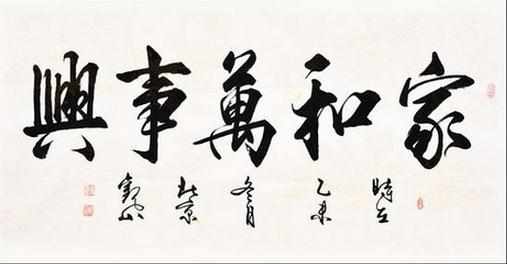 家和萬事興
時在
乙未
冬月